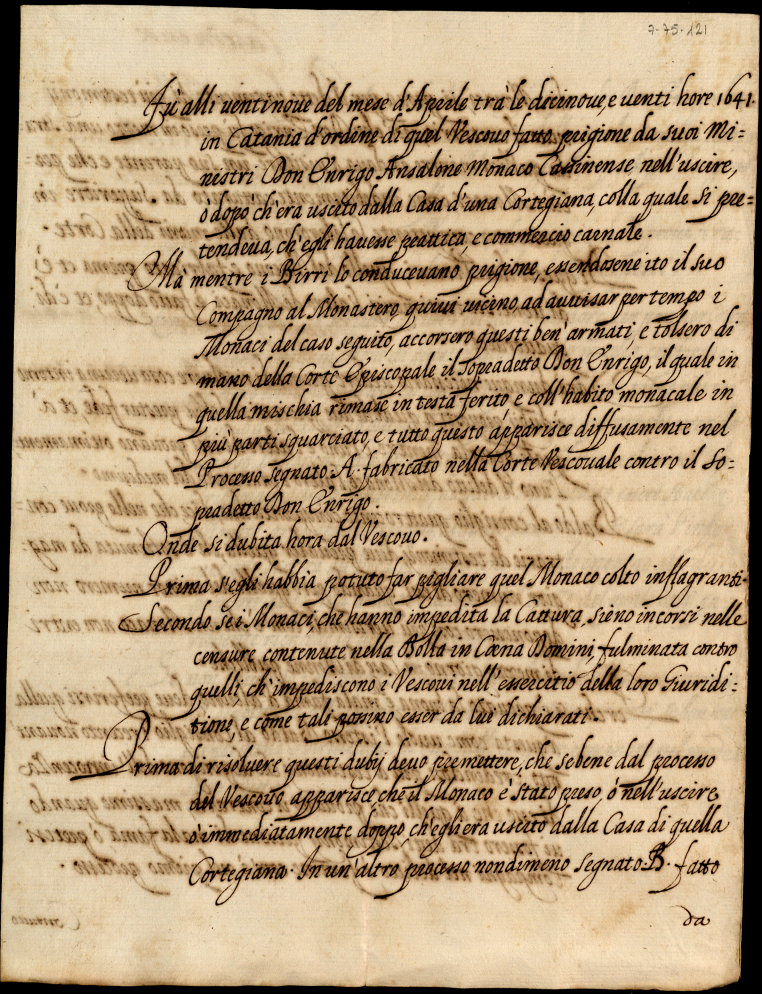 7-75-121
Fù alli ventinoue del mese d'Aprile trà le dicinoue, e venti hore 1641.
in Catania d'ordine di quel Vescouo fatto prigione da suoi Mi=
nistri Don Enrigo Ansalone Monaco Cassinense nell'uscire,
ó dopò ch'era uscito dalla Casa d'una Cortegiana, colla quale si pre=
tendeua, ch'egli hauesse prattica, e commercio carnale.
Mà mentre i Birri lo conduceuano prigione, essendosene ito il suo
Compagno al Monastero quiui uicino, ad auuisar per tempo i
Monaci del caso seguito, accorsero questi ben'armati, e tolsero di
mano della Corte Episcopale il sopradetto Don Enrigo, il quale in
quella mischia rimase in testa ferito e coll'habito monacale in
più parti squarciato, e tutto questo apparisce diffusamente nel
Processo segnato. A. fabricato nella Corte Vescouale contro il so=
pradetto Don Enrigo.
Onde si dubita hora dal Vescouo.
Prima s'egli habbia potuto far pigliare quel Monaco colto inflagranti.
Secondo se i Monaci, che hanno impedita la Cattura, sieno incorsi nelle
censure contenute nella Bolla in Cœna Domini, fulminata contro
quelli, ch'impediscono i Vescoui nell'essercitio della loro Giuridi=
tione, e come tali possino esser da lui dichiarati.
Prima di risoluere questi dubij deuo premettere, che sebene dal processo
del Vescouo apparisce, che il Monaco è stato preso, ó nell'uscire,
ó immediatamente doppo, ch'egli era uscito dalla Casa di quella
Cortegiana. In un'altro processo nondimeno segnato. B. fatto
da